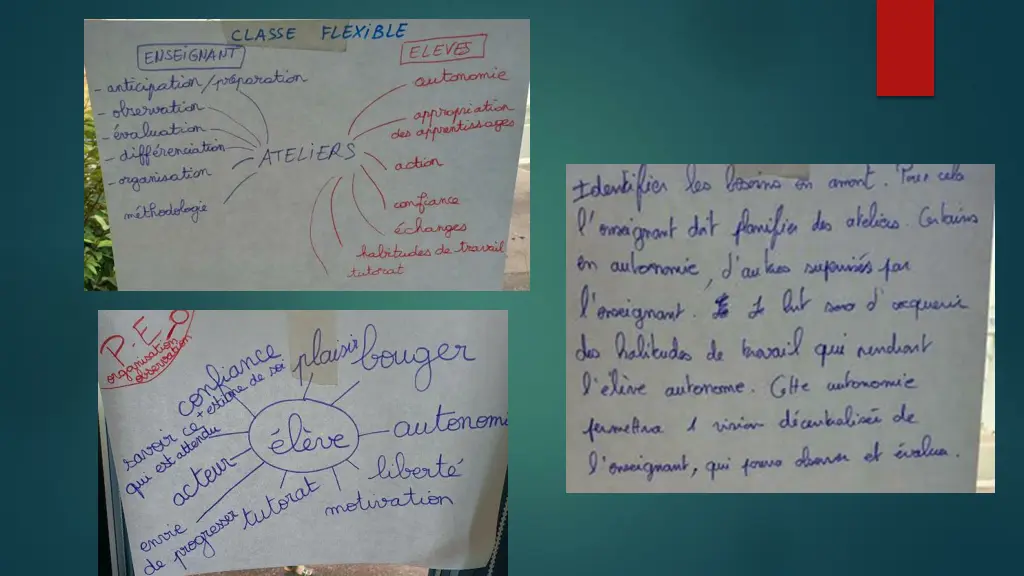 CLASSE FLEXIBLE
ENSEIGNANT
- anticipation/préparation
- observation
- évaluation
- différenciation
- organisation
méthodologie
ATELIERS
ELEVES
autonomie
appropriation
des apprentissages
action
confiance
échanges
habitudes de travail
tutorat
P.E
organisation
observation
confiance
+ estime de soi
plaisir
bouger
savoir ce
qui est attendu
élève
autonomi
acteur
liberté
tutorat
motivation
envie
de progresser
Identifier les besoins en amont. Pour cela
l'enseignant doit planifier des ateliers. Certains
en autonomie, d'autres supervisés par
l'enseignant. Le but sera d'acquérir
des habitudes de travail qui rendront
l'élève autonome. Cette autonomie
permettra 1 vision décentralisée de
l'enseignant, qui pourra observer et évaluer.